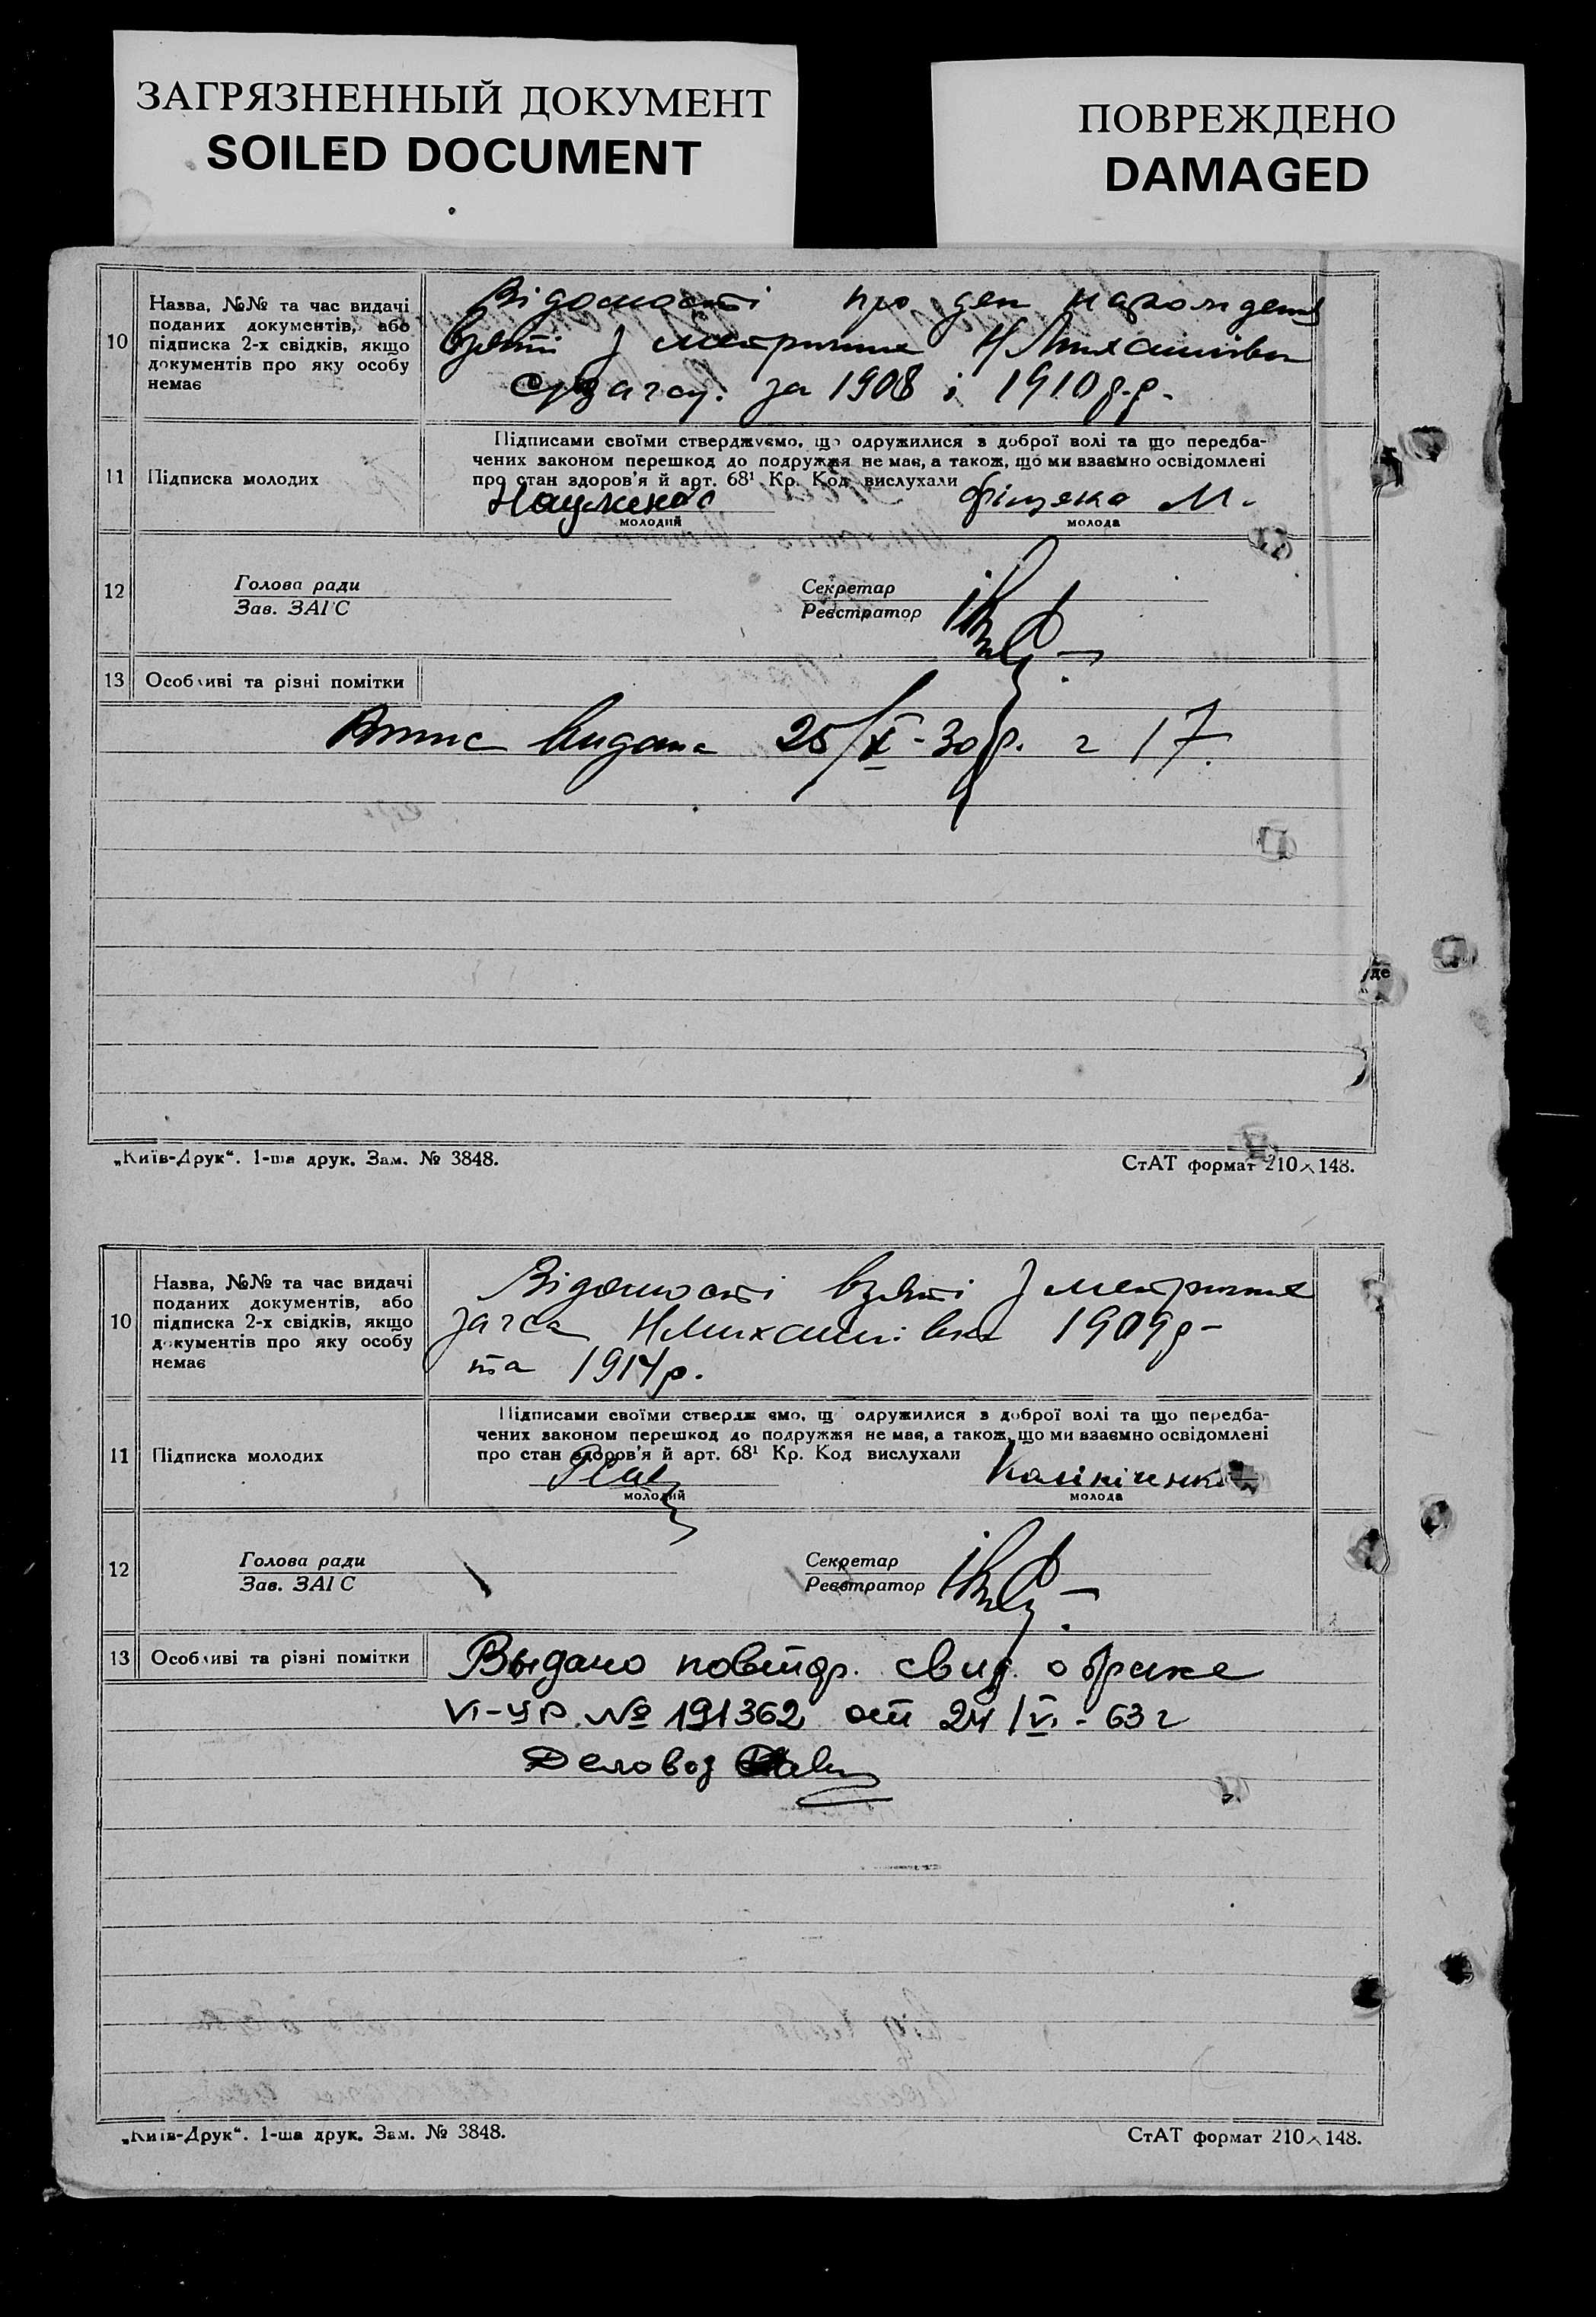 ЗАГРЯЗНЕННЫЙ ДОКУМЕНТ
SOILED DOCUMENT
ПОВРЕЖДЕНО
DAMAGED
10
Назва, №№ та час видачі
поданих документів, або
підписка 2-х свідків, якщо
документів про яку особу
немає
Відомості про ден народження
взяті з метрички Н Михайлівки
за 1908 і 1910 р.р.
11
Підписка молодих
Підписами своїми стверджуємо, що одружилися з доброї волі та що передба-
чених законом перешкод до подружжя не має, а також, що ми взаємно освідомлені
про стан здоров'я й арт. 68¹ Кр. Код вислухали
Науменко
М.
молодий
молода
12
Голова ради
Зав. ЗАГС
Секретар
Реєстратор
13
Особливі та різні помітки
видана 25/X-30р. 17
„Київ-Друк“. 1-ша друк. Зам. № 3848.
СтАТ формат 210×148.
10
Назва, №№ та час видачі
поданих документів, або
підписка 2-х свідків, якщо
документів про яку особу
немає
Відомості взяті з метрички
загса Н Михайлівки 1909р
та 1914р.
11
Підписка молодих
Підписами своїми стверджуємо, що одружилися з доброї волі та що передба-
чених законом перешкод до подружжя не має, а також, що ми взаємно освідомлені
про стан здоров'я й арт. 68¹ Кр. Код вислухали
Калініченко
молодий
молода
12
Голова ради
Зав. ЗАГС
Секретар
Реєстратор
13
Особливі та різні помітки
Выдано повтор. свид. о браке
VI-УР № 191362 от 24/VI-63 г
Деловод
„Київ-Друк“. 1-ша друк. Зам. № 3848.
СтАТ формат 210×148.